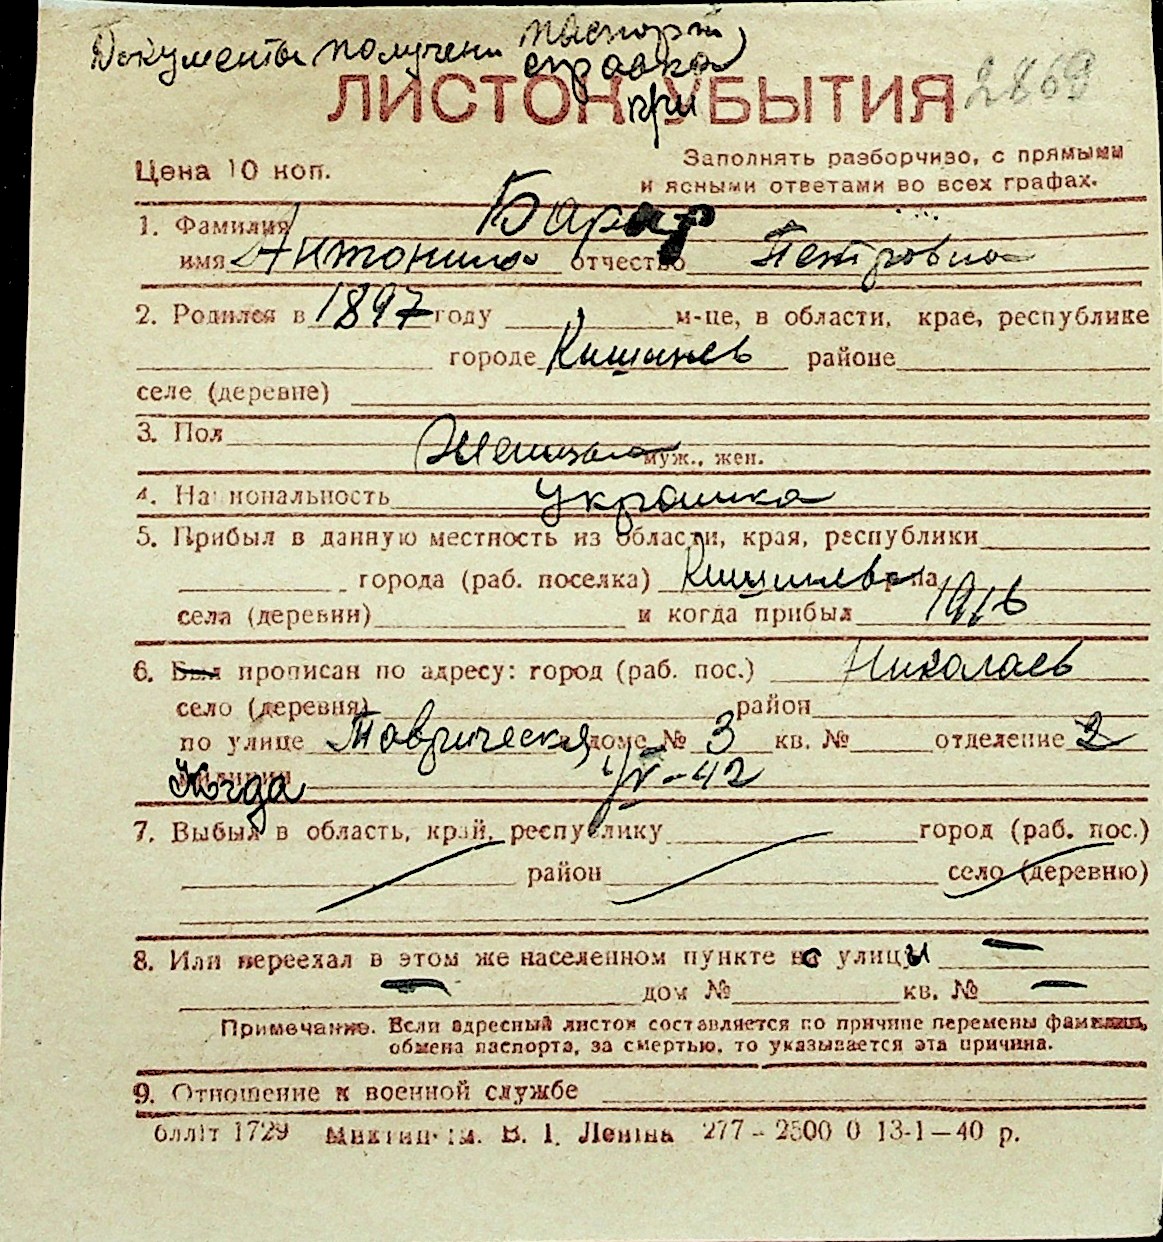 Документы получены паспорт
справка
при
ЛИСТОК УБЫТИЯ 2869
Цена 10 коп.
Заполнять разборчиво, с прямыми
и ясными ответами во всех графах.
1. Фамилия
имя Антонина отчество Петровна
2. Родился в 1897 году м-це, в области, крае, республике
городе Кишинев районе
селе (деревне)
3. Пол Женская муж., жен.
4. Национальность Украинка
5. Прибыл в данную местность из области, края, республики
города (раб. поселка) Кишинева
села (деревни) и когда прибыл 1916
6. Был прописан по адресу: город (раб. пос.) Николаев
село (деревня) район
по улице Таврическая доме № 3 кв. № отделение 2
милиции Когда 1/IV-42
7. Выбыл в область, край, республику город (раб. пос.)
район село (деревню)
8. Или переехал в этом же населенном пункте с улицы —
— дом № кв. № —
Примечание. Если адресный листок составляется по причине перемены фамилии,
обмена паспорта, за смертью, то указывается эта причина.
9. Отношение к военной службе
В. І. Леніна 277 - 2500 0 13-1-40 р.